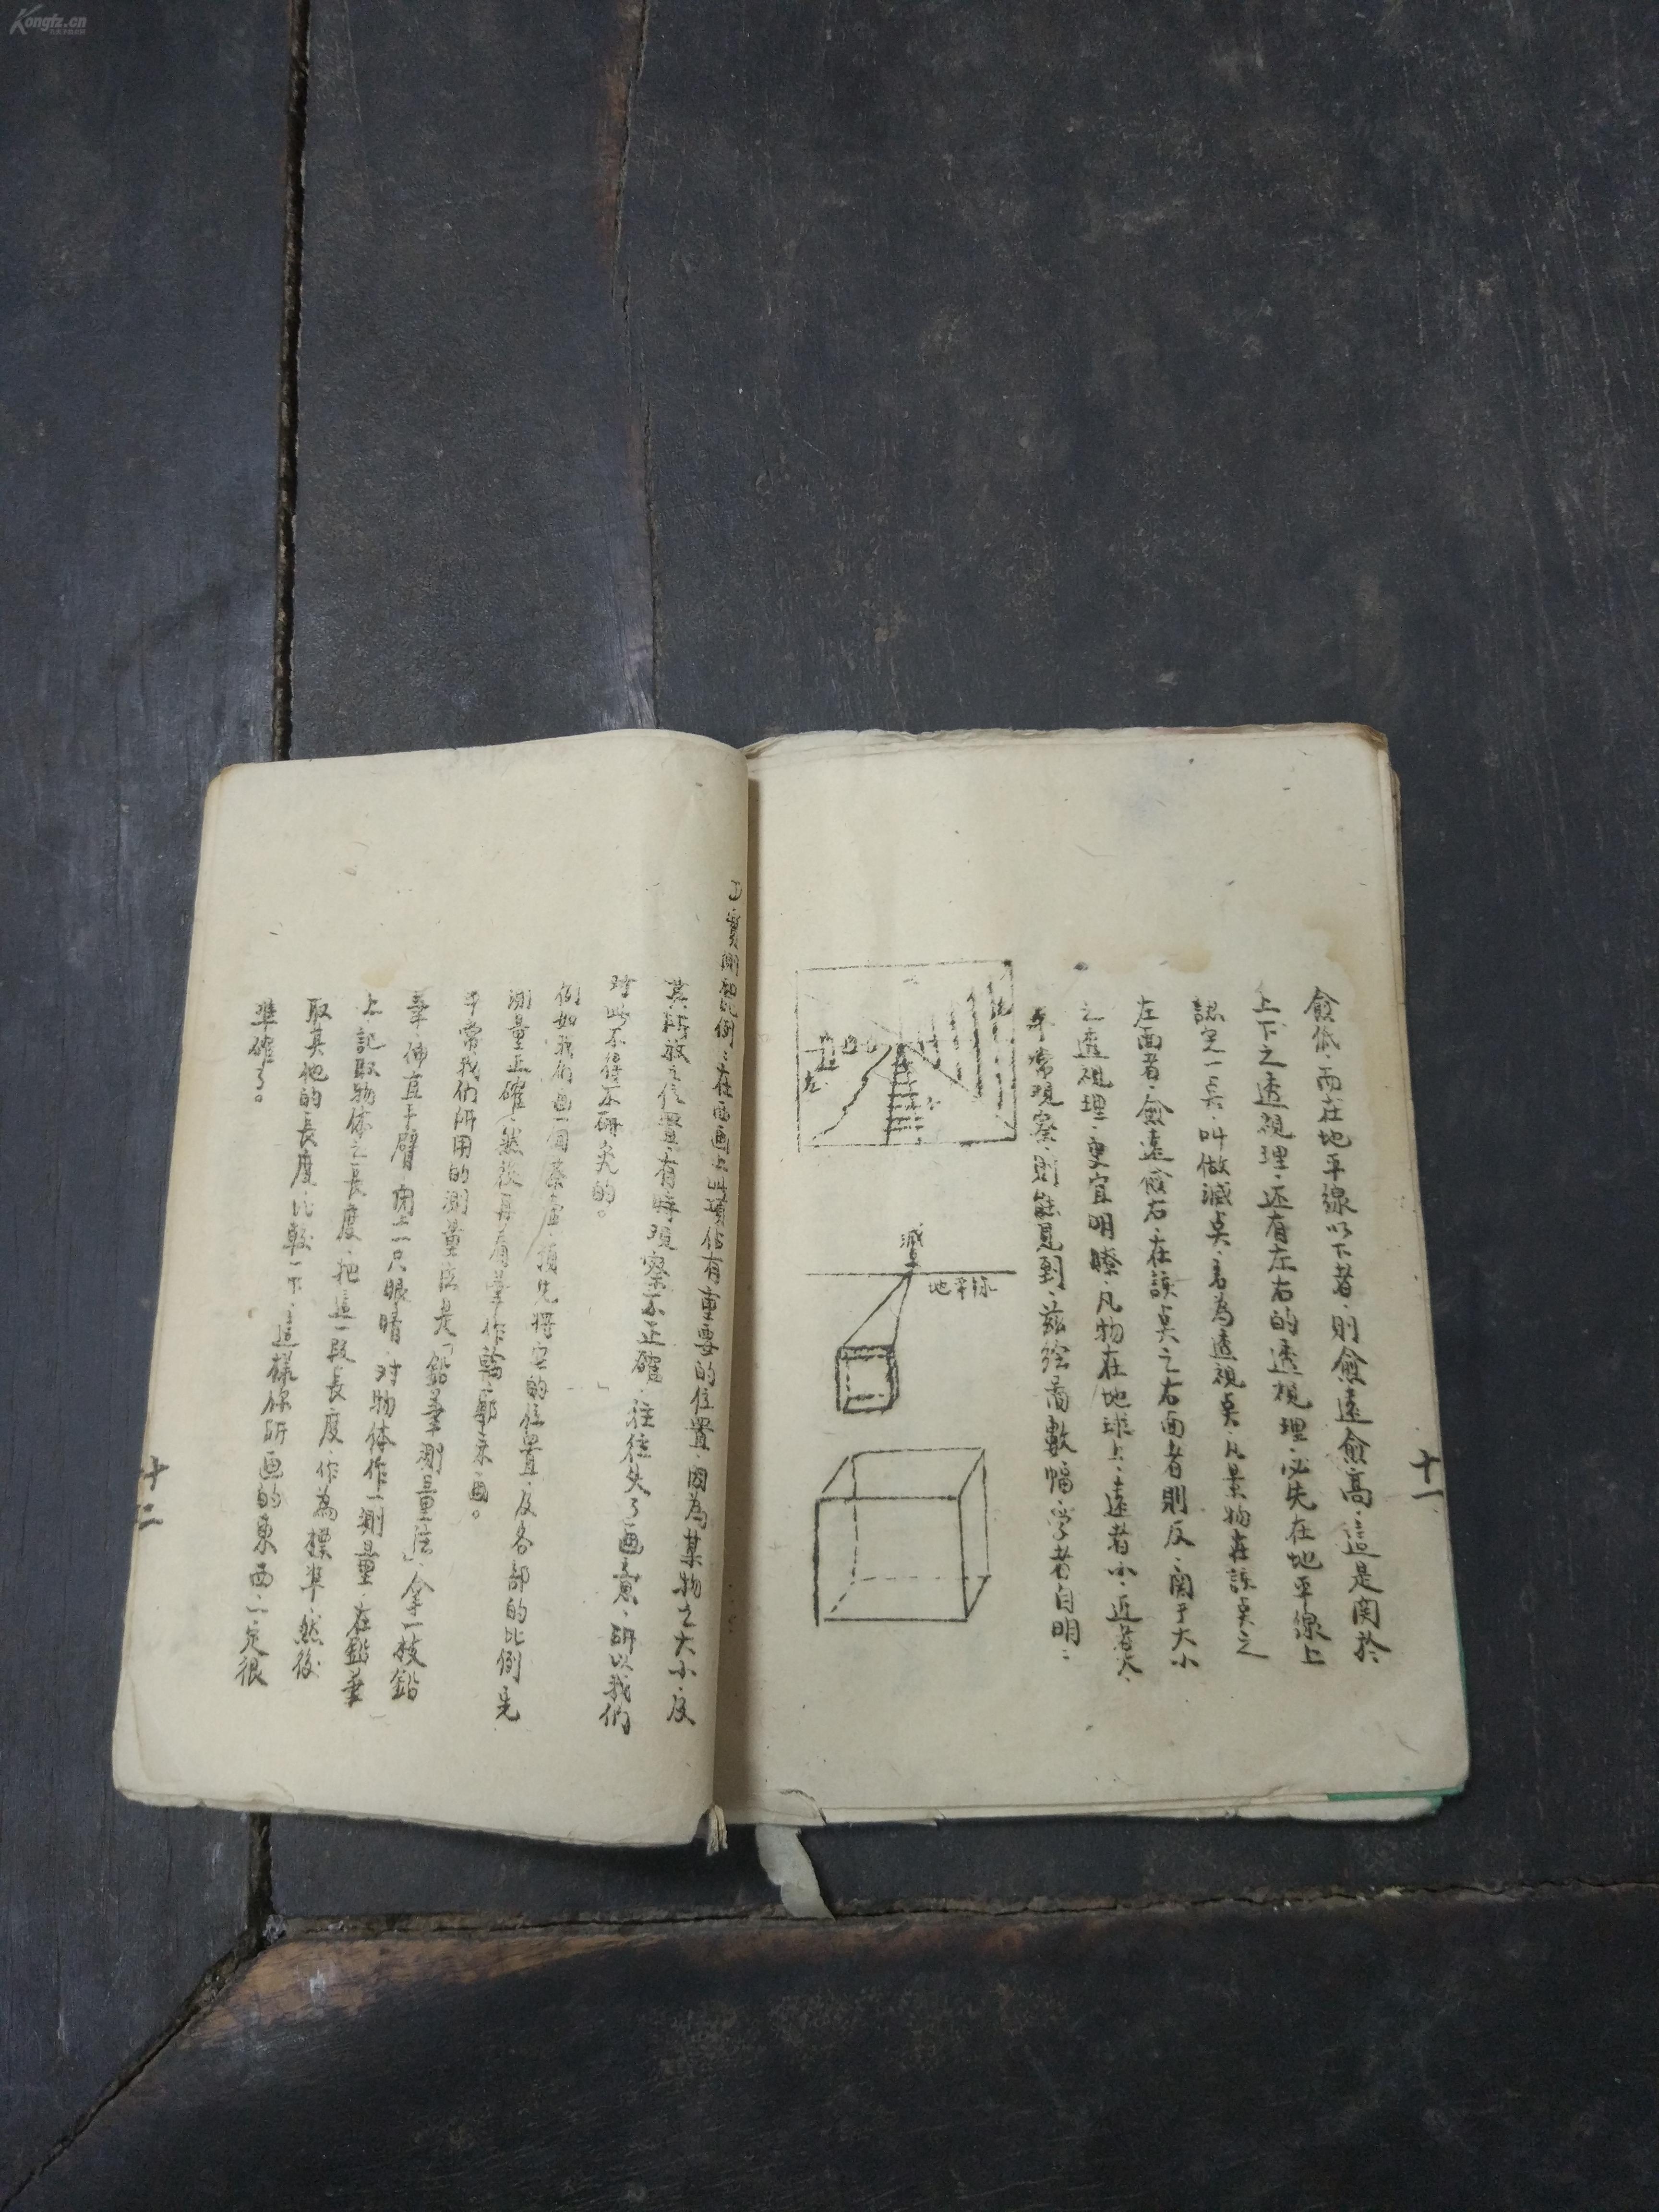 Kongfz.cn
十一
愈低、而在地平線以下者、則愈遠愈高、這是関於
上下之透視理、还有左右的透視理、必先在地平線上
認定一点、叫做滅点、名為透視点、凡景物在該点之
左面者、愈遠愈右、在該点之右面者則反、関于大小
之透視理、更宜明瞭、凡物在地球上、遠者小、近者大、
平常現察、則能見到、茲绘昌數幅学者自明：
左
滅点
地平缐
实測和比例：在画画上此項佔有重要的位置、因為某物之大小、及
其所放之位置、有時現察不正確、往往失了画意、所以我們
对此不得不研究的。
例如我们画一個茶壶、須先将它的位置、及各部的比例先
測量正確、然後再用筆作輪廓来画。
平常我们所用的測量法是「鉛筆測量法」、拿一枝鉛
筆、伸直手臂、闭上一只眼睛、对物体作一測量、在鉛筆
上、記取物体之長度、把這一段長度、作為標準、然後
取其他的長度、比較一下、這樣你所画的東西、一定很
準確了。
十二